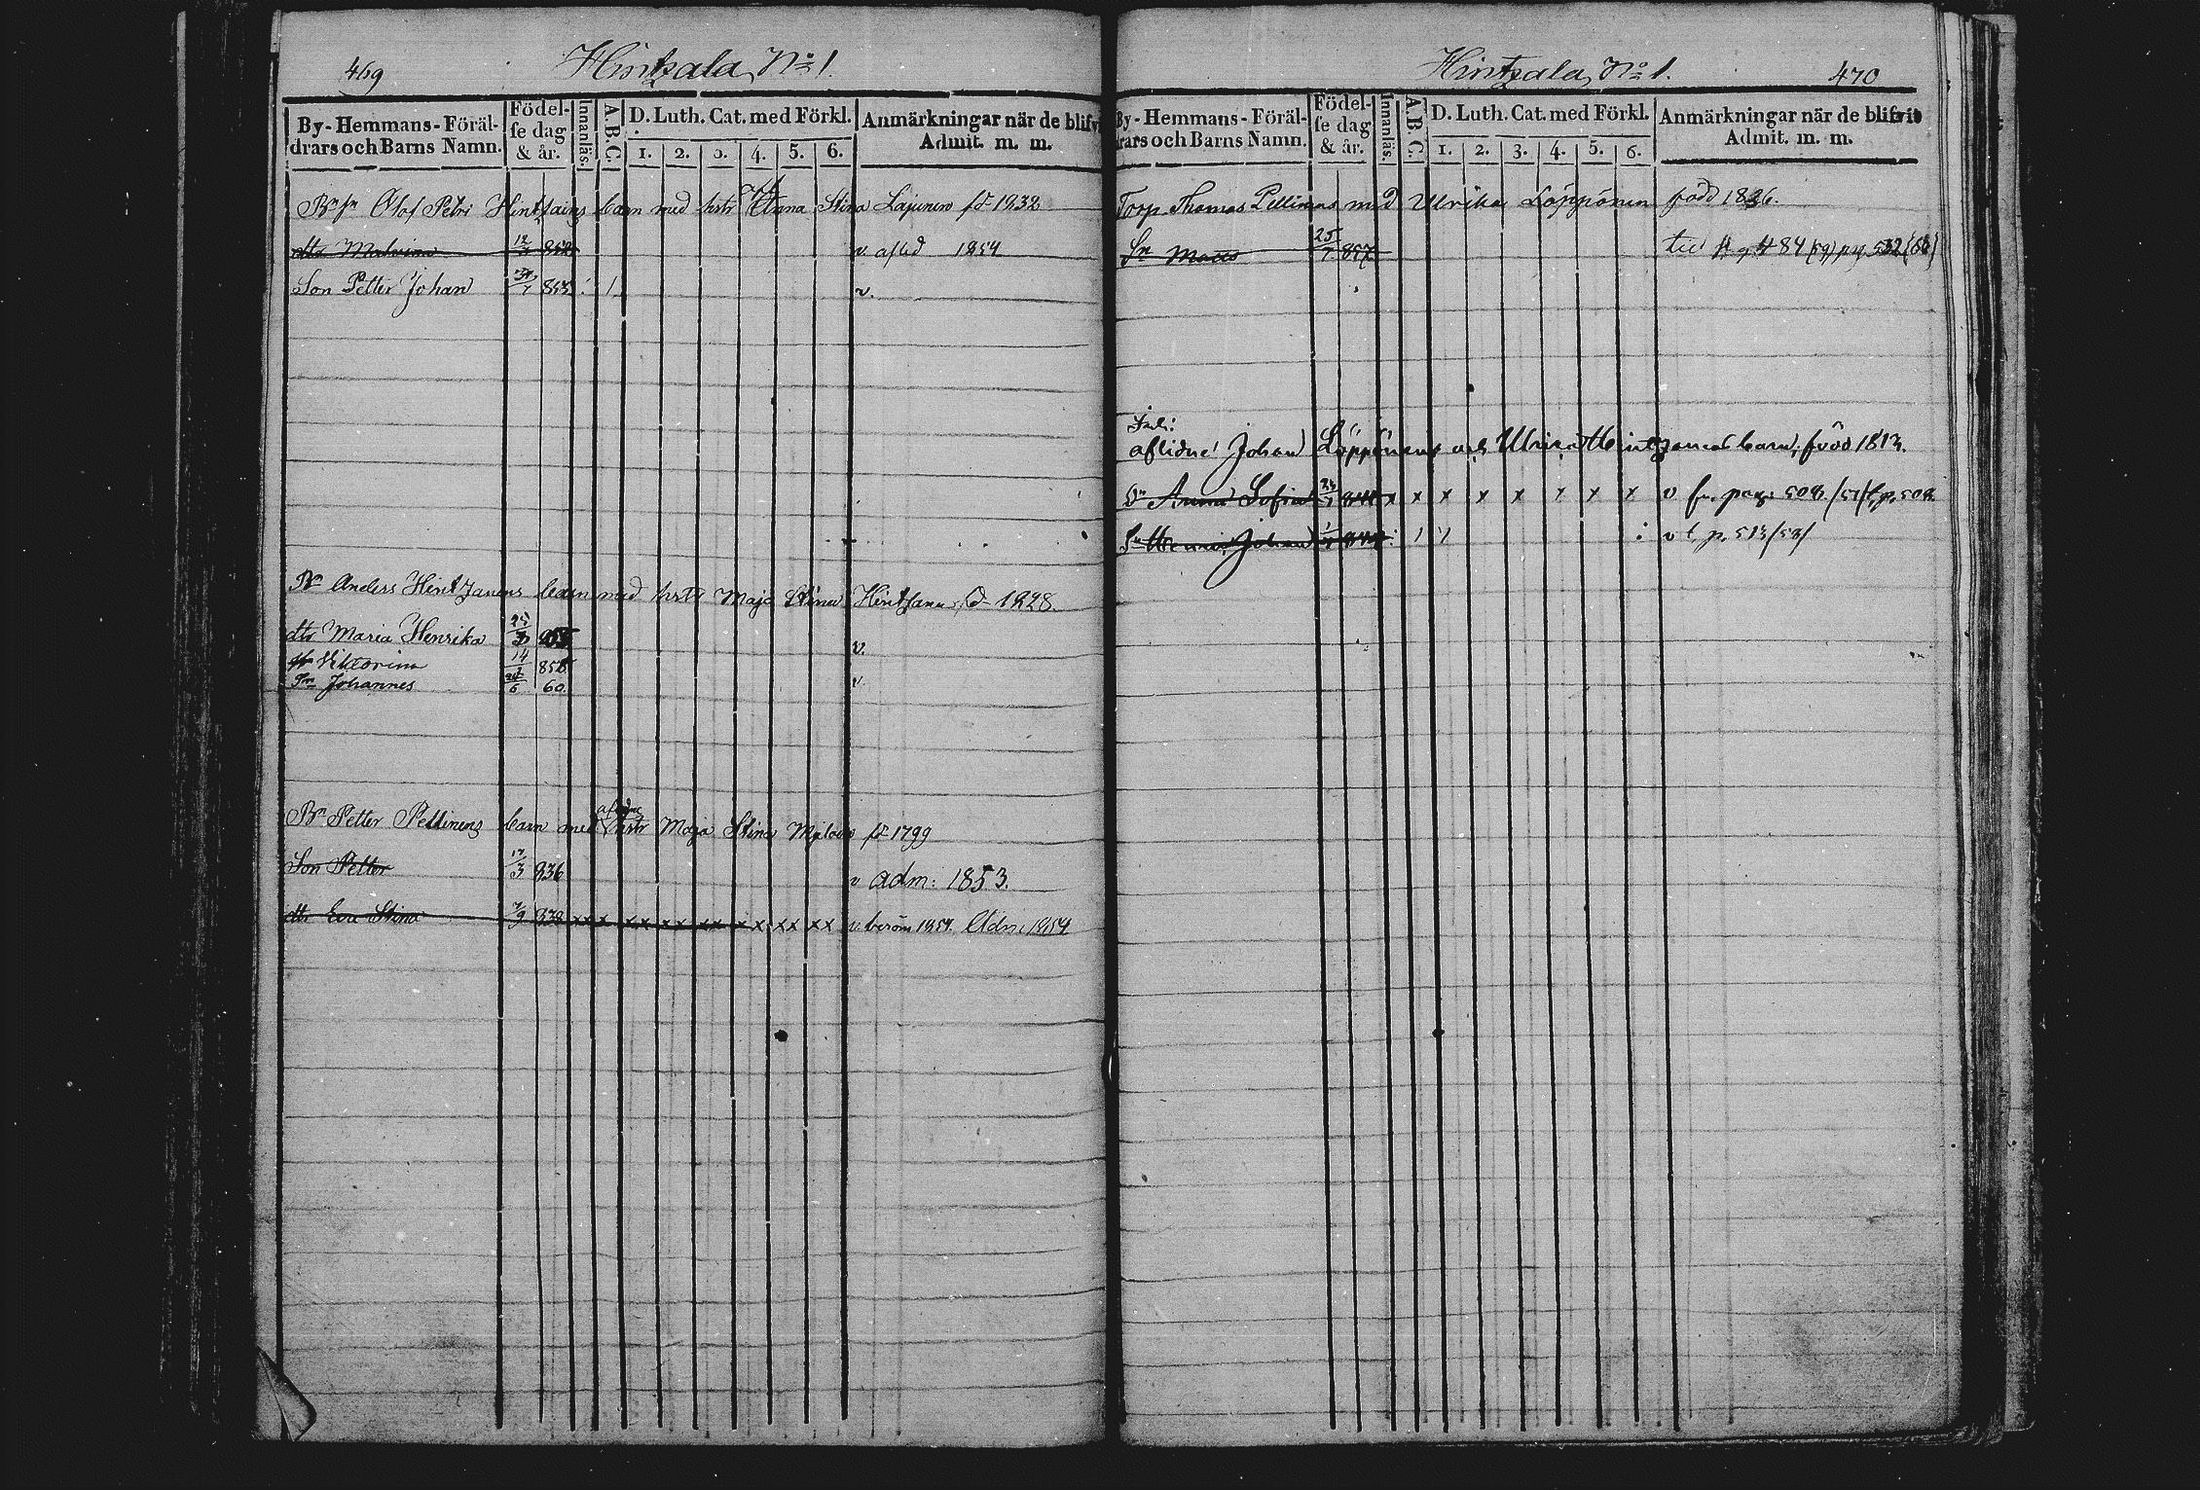 469
Hintzala, No 1.
By-Hemmans-Föräl-
drars och Barns Namn.
Födel-
se dag
& år.
Innanläs.
A.B.C.
D. Luth. Cat. med Förkl.
1. 2. 3. 4. 5. 6.
Anmärkningar när de blifvit
Admit. m. m.
Olof Petri barn med hstr Anna Stina Lajunen 1832
dtr 12 852 v. afled 1854
Son Petter Johan v.
Bn Anders Hintzanens barn med hstr Maja Stina 1828
dtr Maria Henrika v.
Viktorina 14 858
Sn Johannes 6 60
Bn Petter Pellinens barn med aflidne hstr Maja Stina 1799
Son Petter 17/3 836 v adm: 1853.
dtr Eva Stina 7/9 838 xx x xx xx xx x x xx xx v. beröm 1854. Adm. 1854
Hintzala, No 1.
470
By-Hemmans-Föräl-
drars och Barns Namn.
Födel-
se dag
& år.
Innanläs.
A.B.C.
D. Luth. Cat. med Förkl.
1. 2. 3. 4. 5. 6.
Anmärkningar när de blifvit
Admit. m. m.
Torp Thomas Pellinens med Ulrika Löppönen född 1826.
Sn Matts 25/7 857 484 pag 532
Inh:
aflidne Johan Löppönens och barn, född 1813.
Dr Anna Sofia x x x x x x x x v fr. pag: 508
Sn Johan v t. p. 513